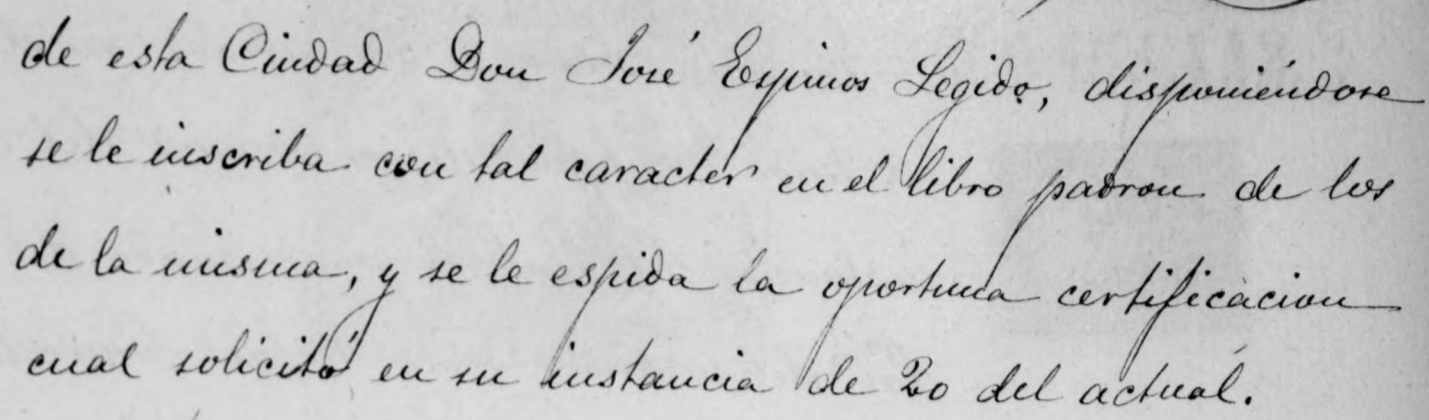 de esta Ciudad Don José Espinos Legido, disponiéndose
se le inscriba con tal caracter en el libro padron de los
de la misma, y se le espida la oportuna certificacion
cual solicitó en su instancia de 20 del actual.